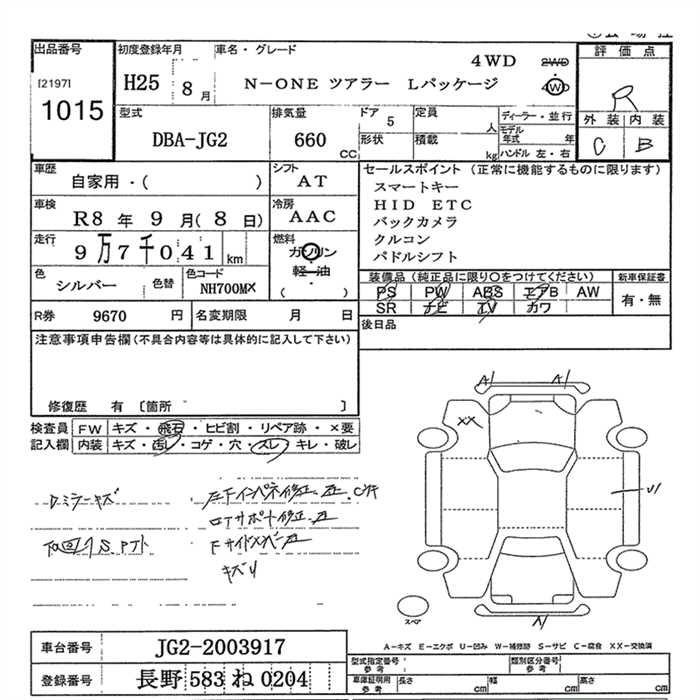 出品番号
[2197]
1015
初度登録年月
H25 8 月
車名・グレード
4WD
N-ONE ツアラー Lパッケージ
2WD
4WD
評価点
R
外装 内装
C B
型式
DBA-JG2
排気量
660
CC
ドア 5
形状
定員
人
積載
kg
ディーラー・並行
モデル年式 年
ハンドル 左・右
車歴
自家用・( )
シフト
AT
車検
R8 年 9 月( 8 日)
冷房
AAC
走行
9万7千041 km
燃料
ガソリン
軽・油
( )
色
シルバー
色替
色コード
NH700M×
セールスポイント (正常に機能するものに限ります)
スマートキー
HID ETC
バックカメラ
クルコン
パドルシフト
装備品(純正品に限り○をつけてください)
PS PW ABS エアB AW
SR ナビ TV カワ
新車保証書
有・無
R券 9670 円
名変期限 月 日
後日品
注意事項申告欄(不具合内容等は具体的に記入して下さい)
修復歴 有 〔箇所 〕
検査員記入欄
FW キズ・飛石・ヒビ割・リペア跡・×要
内装 キズ・汚レ・コゲ・穴・スレ・キレ・破レ
A1 A1
XX
U1
スペア
A-キズ E-エクボ U-凹み W-補修跡 S-サビ C-腐食 XX-交換済
車台番号
JG2-2003917
登録番号
長野 583 ね 0204
型式指定番号
参考
類別区分番号
参考
車庫証明用
参考
長さ cm
幅 cm
高さ cm